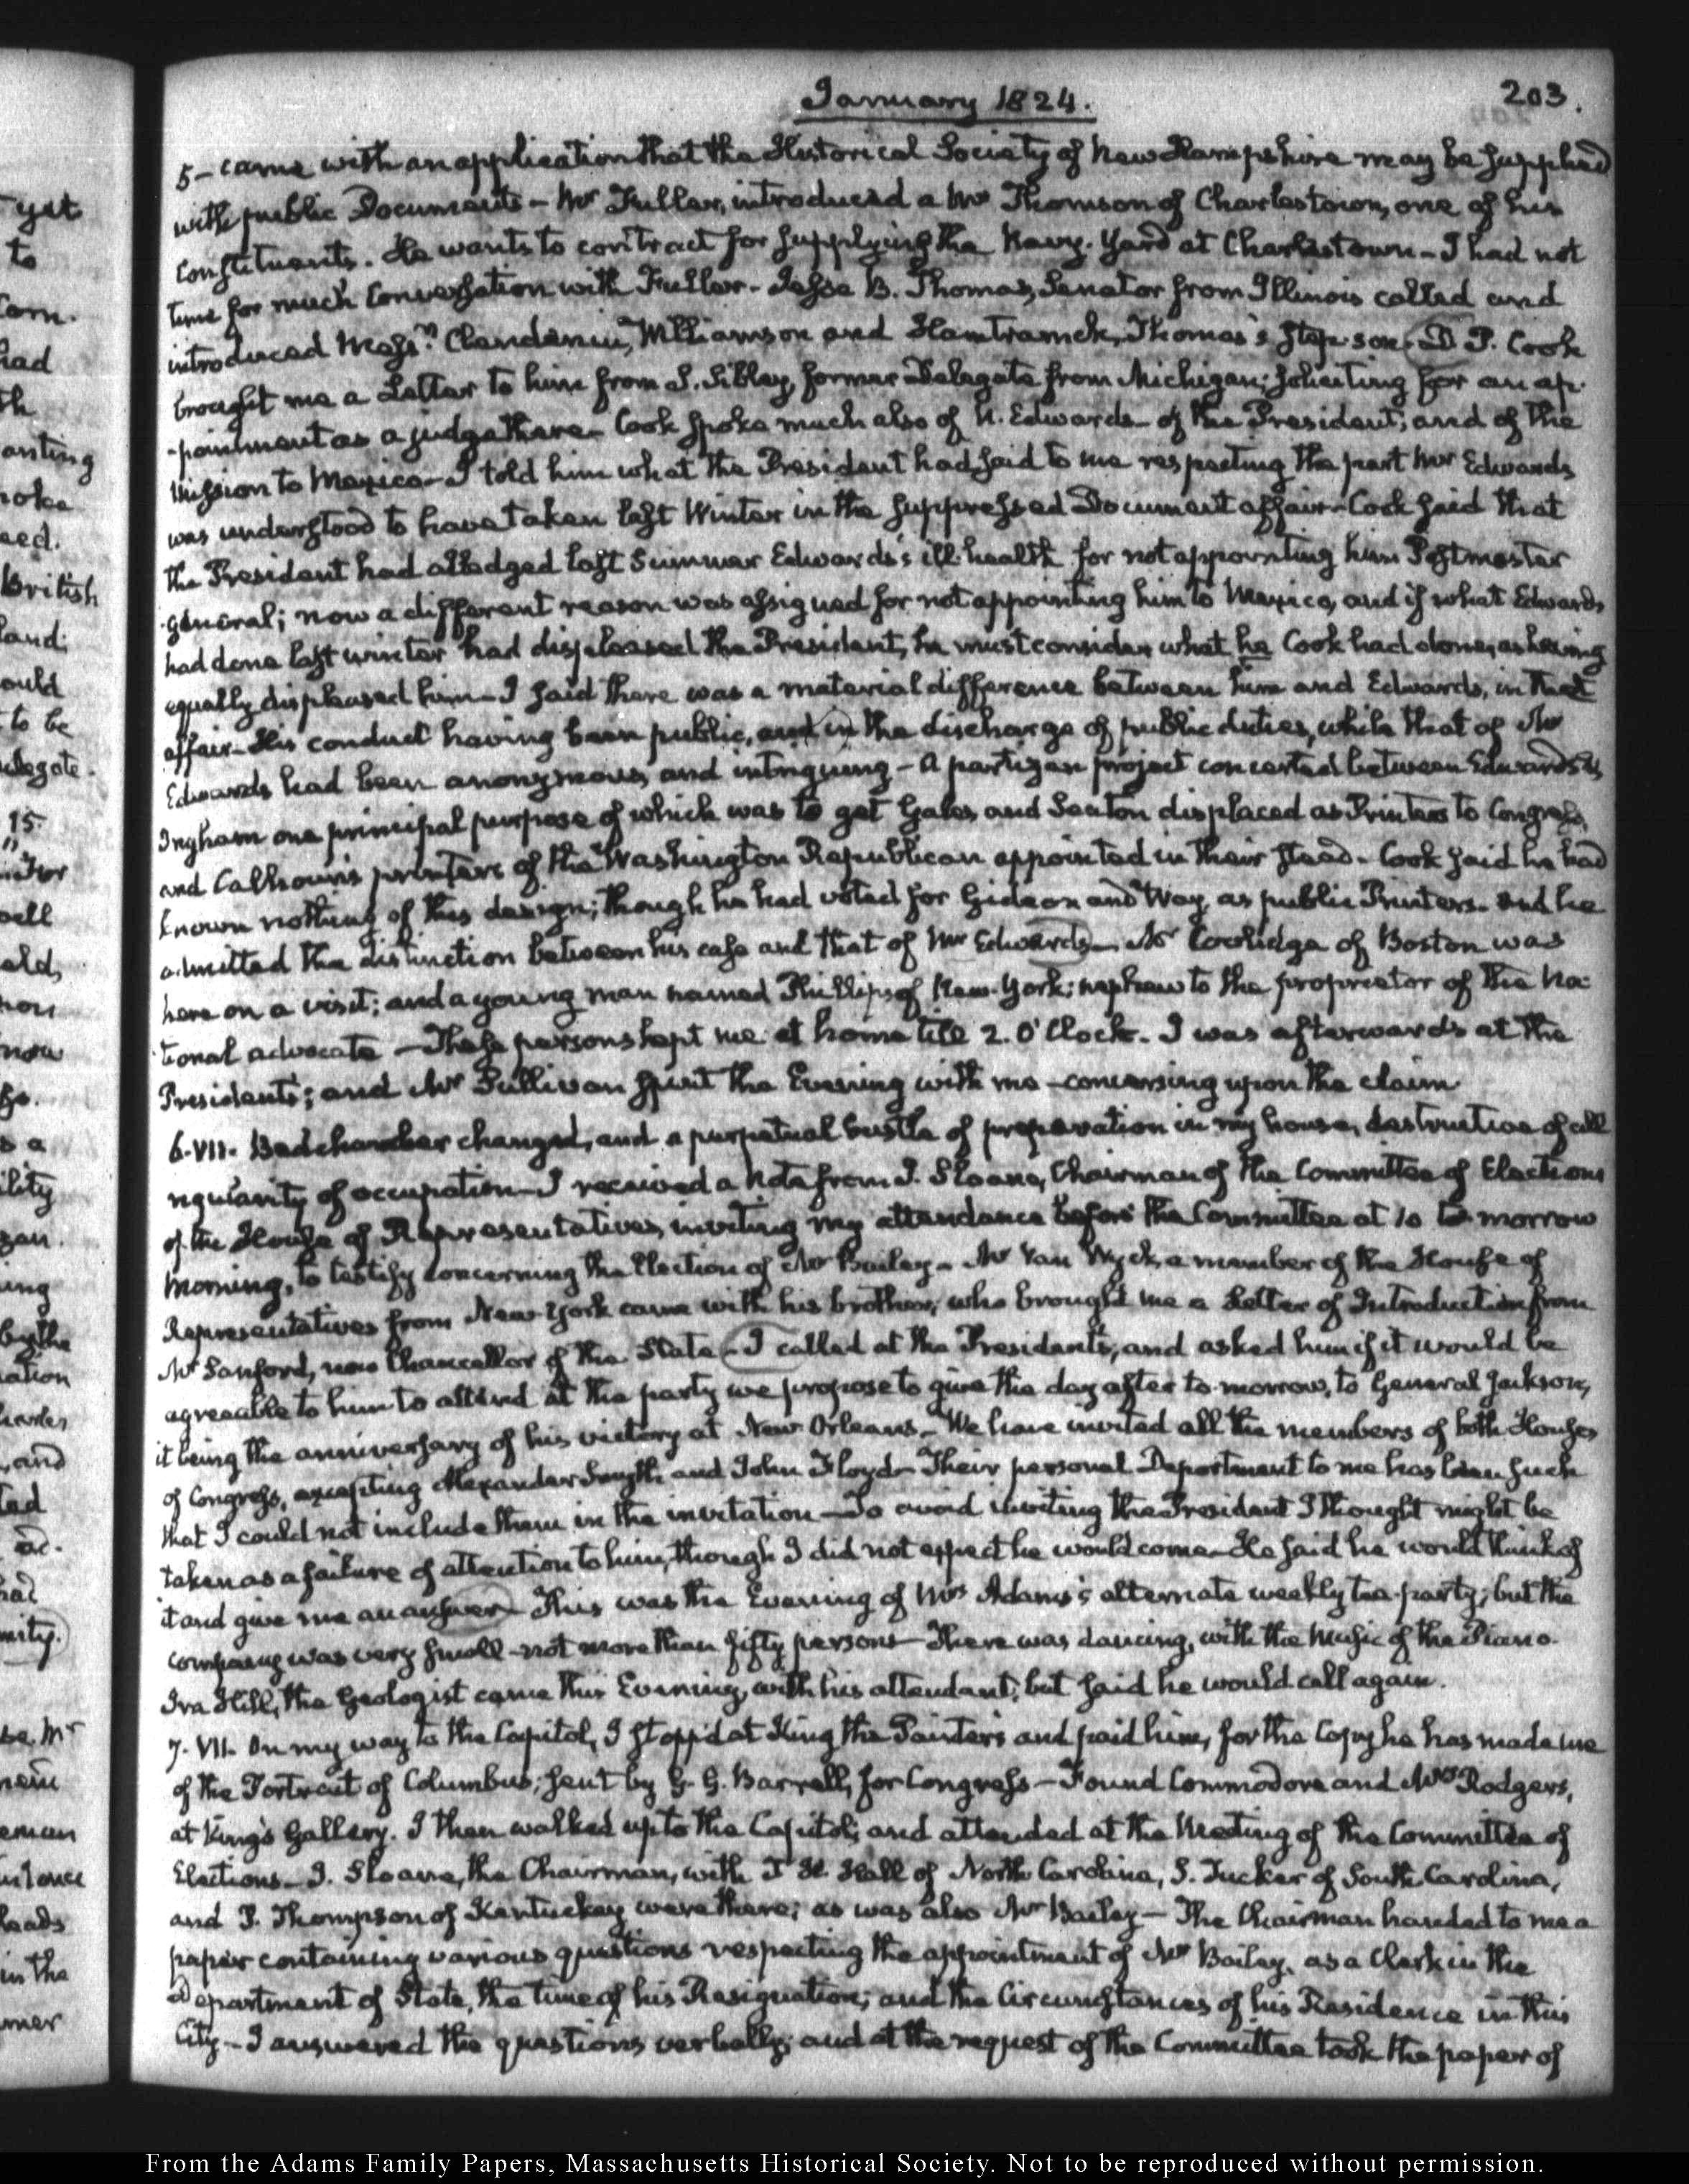 January 1824.
203.
5 - came with an application that the Historical Society of New Hampshire may be supplied
with public Documents - Mr Fuller, introduced a Mr Thomson of Charlestown, one of his
Constituents. He wants to contract for supplying the Navy-Yard at Charlestown - I had not
time for much Conversation with Fuller - Jesse B. Thomas, Senator from Illinois called and
introduced Messrs. Clendenin, Williamson and Hamtramck, Thomas's step-son. D. P. Cook
brought me a Letter to him from S. Sibley, former Delegate from Michigan; soliciting for an ap-
-pointment as a judge there - Cook spoke much also of N. Edwards - of the President; and of the
Mission to Mexico - I told him what the President had said to me respecting the part Mr Edwards
was understood to have taken last Winter in the suppressed Document affair - Cook said that
the President had alledged last Summer Edwards's ill-health for not appointing him Postmaster
general; now a different reason was assigned for not appointing him to Mexico, and if what Edwards
had done last winter had displeased the President, he must consider what he Cook had done, as having
equally displeased him - I said there was a material difference between him and Edwards, in that
affair - His conduct having been public, and in the discharge of public duties, while that of Mr
Edwards had been anonymous, and intriguing - A partizan project concerted between Edwards &
Ingham one principal purpose of which was to get Gales and Seaton displaced as Printers to Congress,
and Calhoun's printers of the Washington Republican appointed in their stead - Cook said he had
known nothing of this design; though he had voted for Gideon and Way, as public Printers - and he
admitted the distinction between his case and that of Mr Edwards - Mr Coolidge of Boston was
here on a visit; and a young man named Phillips of New-York; nephew to the proprietor of the Na-
tional advocate - These persons kept me at home till 2. O'Clock. I was afterwards at the
Presidents; and Mr Sullivan spent the Evening with me - conversing upon the claim
6. VII. Bedchamber changed, and a perpetual bustle of preparation in my house, destructive of all
regularity of occupation - I received a Note from J. Sloane, Chairman of the Committee of Elections
of the House of Representatives, inviting my attendance before the Committee at 10 to-morrow
Morning, to testify concerning the Election of Mr Bailey - Mr Van Wyck, a member of the House of
Representatives from New-York came with his brother, who brought me a Letter of Introduction from
Mr Sanford, now Chancellor of the State - I called at the Presidents, and asked him if it would be
agreeable to him to attend at the party we propose to give the day after to-morrow, to General Jackson,
it being the anniversary of his victory at New Orleans - We have invited all the members of both Houses
of Congress, excepting Alexander Smyth and John Floyd - Their personal Deportment to me has been such
that I could not include them in the invitation - To avoid inviting the President I thought might be
taken as a failure of attention to him, though I did not expect he would come - He said he would think of
it and give me an answer - This was the Evening of Mrs Adams's alternate weekly tea-party; but the
company was very small - not more than fifty persons - There was dancing, with the Music of the Piano.
Ira Hill, the Geologist came this Evening, with his attendant; but said he would call again.
7. VII. On my way to the Capitol, I stopp'd at King the Painter's and paid him, for the Copy he has made me
of the Portrait of Columbus, sent by G. G. Barrell, for Congress - Found Commodore and Mrs Rodgers,
at King's Gallery. I then walked up to the Capitol; and attended at the Meeting of the Committee of
Elections - J. Sloane, the Chairman, with T H Hall of North Carolina, S. Tucker of South Carolina,
and P. Thompson of Kentuckey were there; as was also Mr Bailey - The Chairman handed to me a
paper containing various questions respecting the appointment of Mr Bailey, as a Clerk in the
Department of State, the time of his Resignation; and the Circumstances of his Residence in this
City - I answered the questions verbally; and at the request of the Committee took the paper of
From the Adams Family Papers, Massachusetts Historical Society. Not to be reproduced without permission.